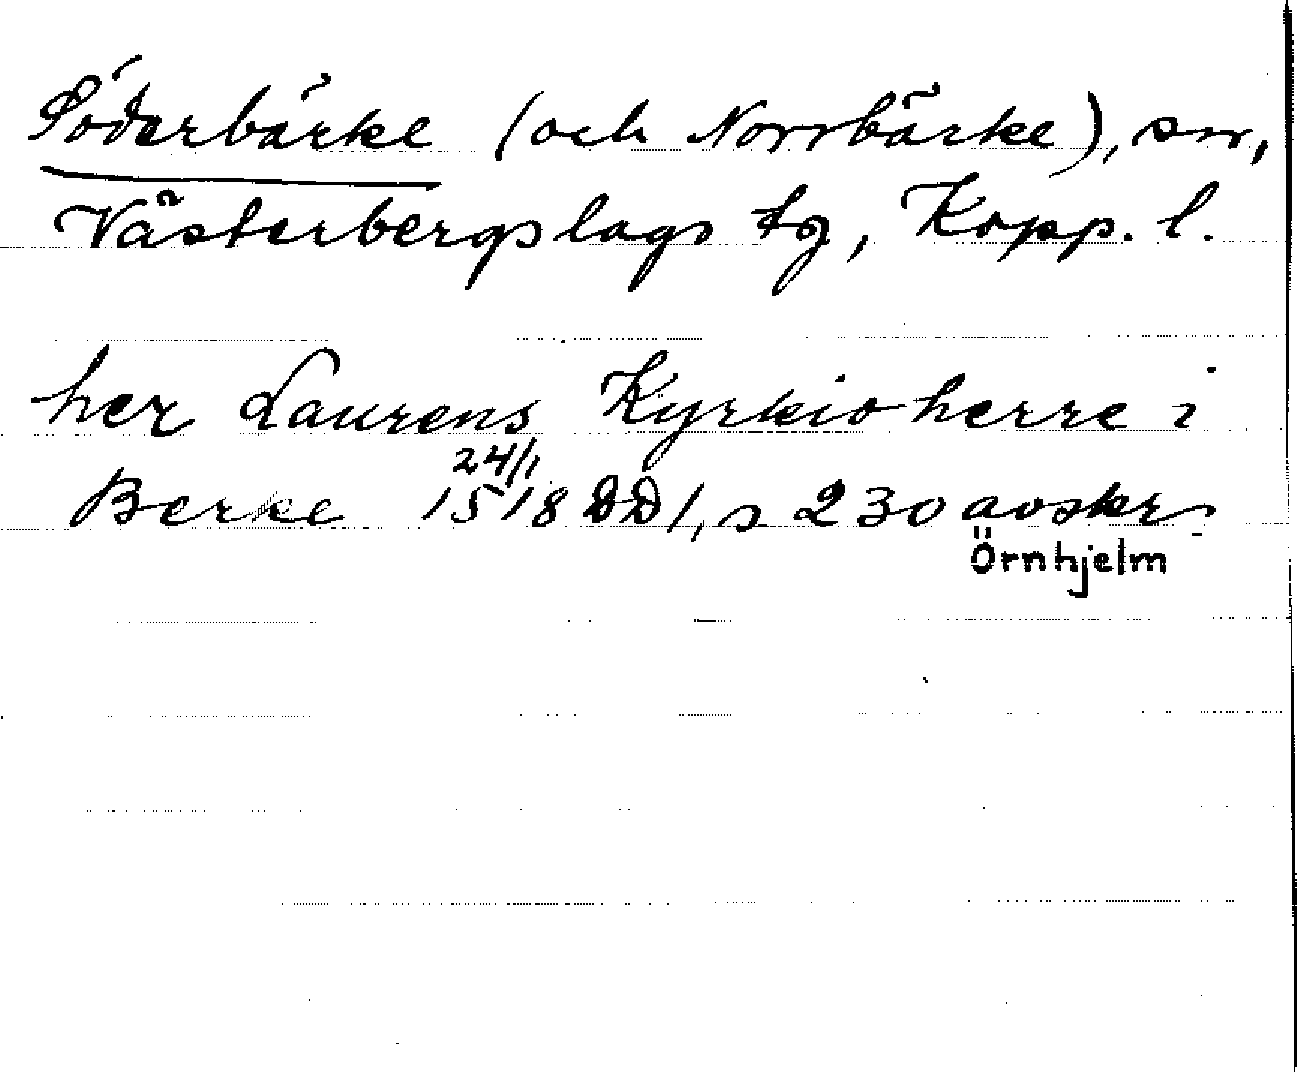 Söderbärke (och Norrbärke), snr,
Västerbergslags tg, Kopp. l.
her Laurens Kyrkioherre i
Berke 24/1 1518 DD 1, s 230 avskr
Örnhjelm